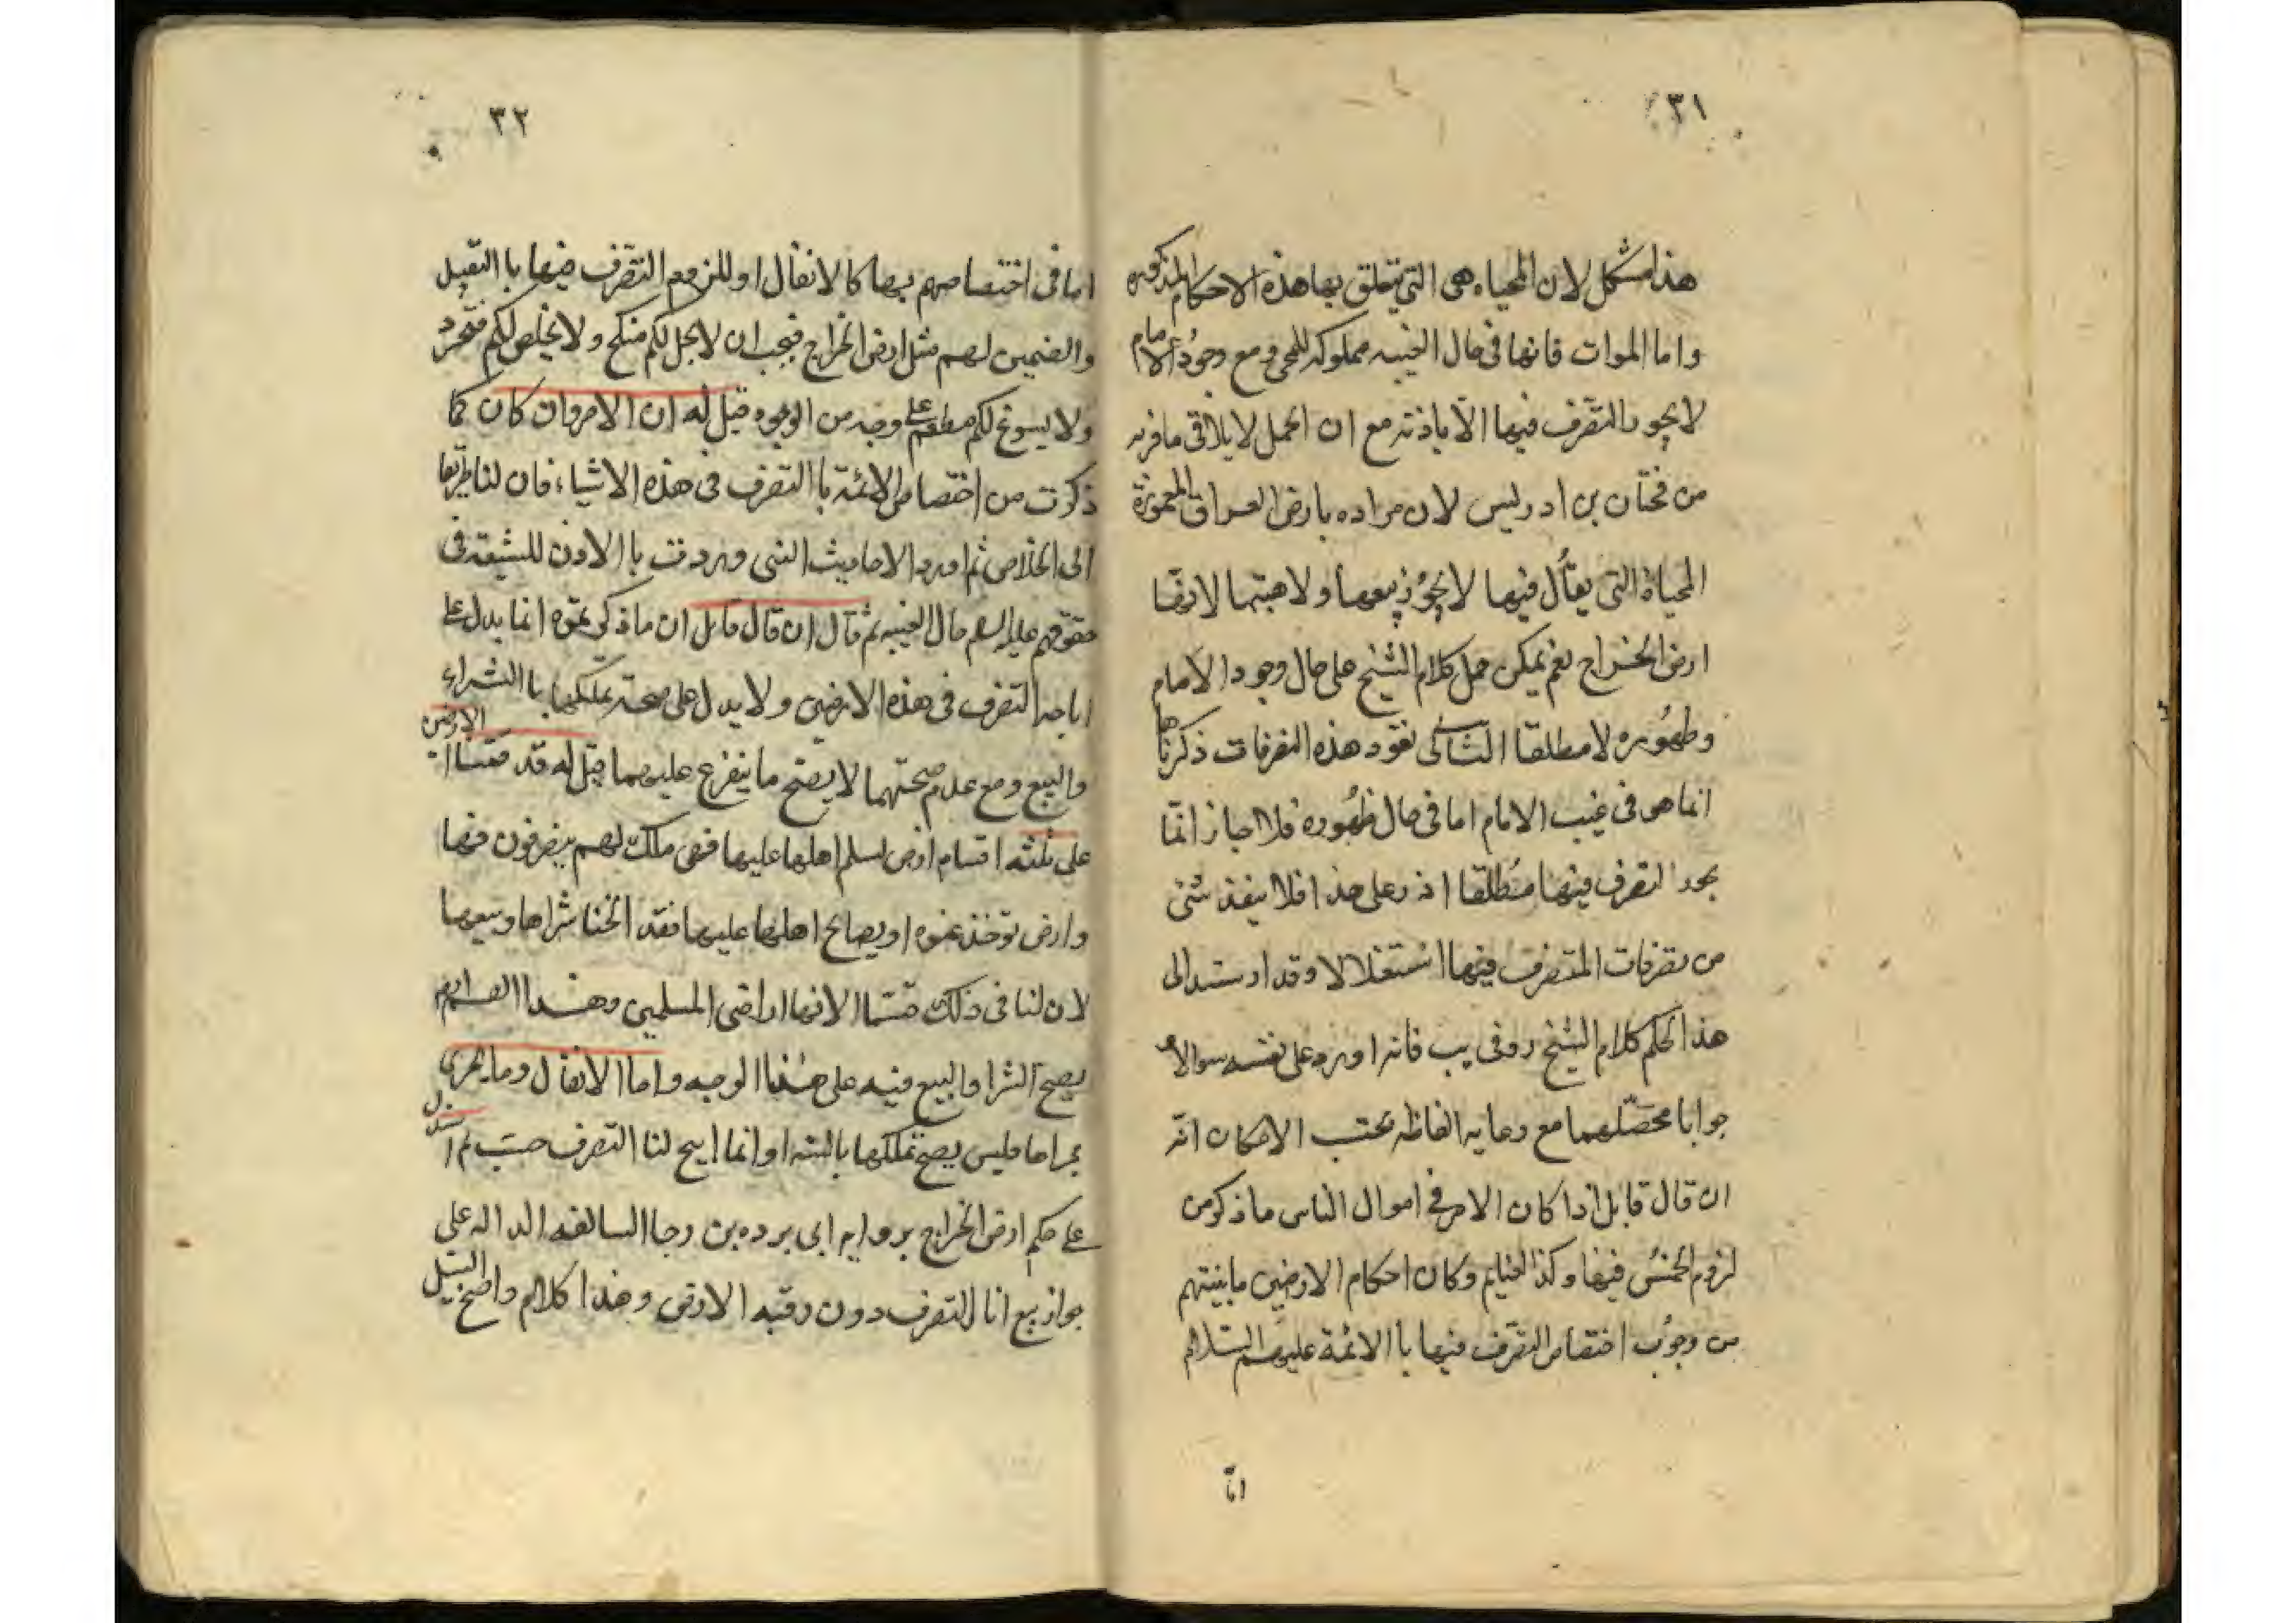 ٣١
هذا مشكل لان المحياه هى التى يتعلق بها هذه الاحكام المذكوره
واما الموات فانها فى حال الغيبه مملوكه للمحى ومع وجود الامام
لا يجوز التصرف فيها الا باذنه مع ان الحمل لا يلاقى مافر به
من بن ادريس لان مراده بارض العراق المعمورة
المحياة التى يقال فيها لا يجوز بيعها ولا هبتها لانها
ارض الخراج نعم يمكن حمل كلام الشيخ على حال وجود الامام
وظهوره لا مطلقا الثانى نفوذ هذه التصرفات ذكرناها
انما هو فى غيب الامام اما فى حال ظهوره فلا اجاز انما
يجوز التصرف فيها مطلقا اذ وعلى هذا فلا ينفذ شئ
من تصرفات المتصرف فيها استقلالا وقد ارسند الى
هذا الحكم كلام الشيخ ره فى يب فانه اورد على نفسه سوالا و
جوابا محصلهما مع رعايه الفاظه بحسب الامكان انه
ان قال قايل اذا كان الامر فى اموال الناس ما ذكر من
لزوم الخمس فيها وكذا الغنايم وكان احكام الارضين ما بينتم
من وجوب اختصاص التصرف فيها با الائمة عليهم السلام
اما
٣٢
اما فى اختصاصهم بها كا لانفال او للزومهم التصرف فيها با التقبيل
والتضمين لهم مثل ارض الخراج فيجب ان لا يحل لكم منكح ولا يخلص لكم متجر
ولا يسوغ لكم مطعم على وجه من الوجوه قيل له ان الامر وان كان كما
ذكرت من اختصاص الائمة با التصرف فى هذه الاشياء فان لنا طريقا
الى الخلاص ثم اورد الاحاديث التى وردت با الاذن للشيعة فى
حقوقهم عليه السلم حال الغيبه ثم قال ان قال قايل ان ما ذكرتموه انما يدل على
اباحه التصرف فى هذه الارضين ولا يدل على صحة تملكها با الشراء
والبيع ومع عدم صحتهما لا يصح ما يتفرع عليهما قيل له قد قسمنا الارضين
على ثلثه اقسام ارض اسلم اهلها عليها فهى ملك لهم يتصرفون فيها
وارض توخذ عنوه او يصالح اهلها عليها فقد ابحنا شراها وبيعها
لان لنا فى ذلك قسما لانها اراضى المسلمين وهذا القسم ايضا
يصح الشرا والبيع فيه على هذا الوجه واما الانفال وما يجرى
مجراها فليس يصح تملكها بالشراء وانما ابيح لنا التصرف حسب ثم استدل
على حكم ارض الخراج بروايه ابى برده بن رجا السالفه الداله على
جواز بيع اثا التصرف دون رقبه الارض وهذا كلام واضح السبيل